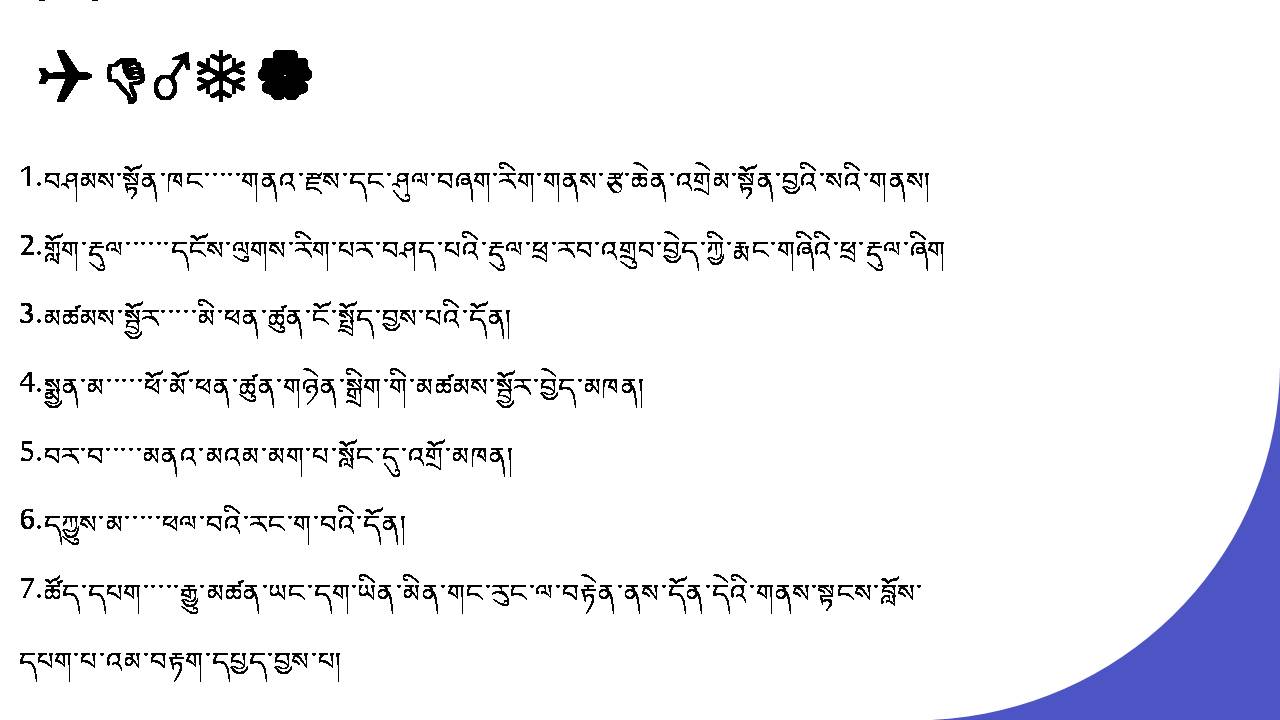 ✈👎♂❄✿
1.བཤམས་སྟོན་ཁང་་་་་གནའ་རྫས་དང་ཤུལ་བཞག་རིག་གནས་རྩ་ཆེན་འགྲེམ་སྟོན་བྱའི་སའི་གནས།
2.གློག་རྡུལ་་་་་་དངོས་ལུགས་རིག་པར་བཤད་པའི་རྡུལ་ཕྲ་རབ་འགྲུབ་བྱེད་ཀྱི་རྨང་གཞིའི་ཕྲ་རྡུལ་ཞིག
3.མཚམས་སྦྱོར་་་་་མི་ཕན་ཚུན་ངོ་སྤྲོད་བྱས་པའི་དོན།
4.སྨྱན་མ་་་་་ཕོ་མོ་ཕན་ཚུན་གཉེན་སྒྲིག་གི་མཚམས་སྦྱོར་བྱེད་མཁན།
5.བར་བ་་་་་མནའ་མའམ་མག་པ་སློང་དུ་འགྲོ་མཁན།
6.དཀྱུས་མ་་་་་ཕལ་བའི་རང་ག་བའི་དོན།
7.ཚོད་དཔག་་་་་རྒྱུ་མཚན་ཡང་དག་ཡིན་མིན་གང་རུང་ལ་བརྟེན་ནས་དོན་དེའི་གནས་སྟངས་བློས་
དཔག་པ་འམ་བརྟག་དཔྱད་བྱས་པ།